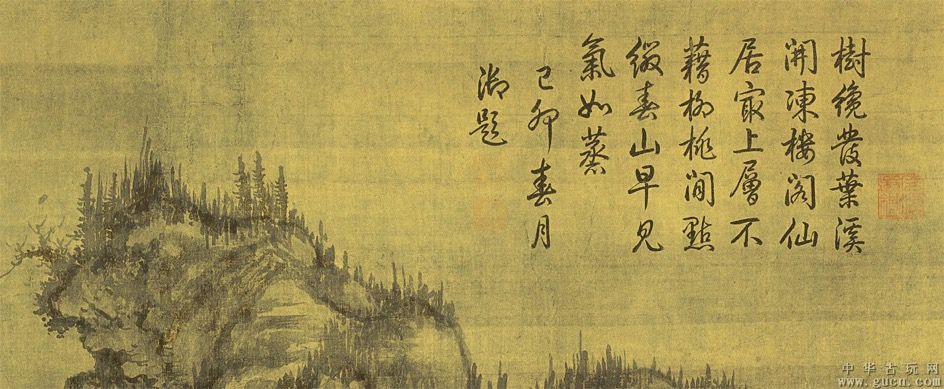 樹纔發葉溪
開凍樓閣仙
居最上層不
藉柳桃閒點
綴春山早見
氣如蒸
己卯春月
御題
中华古玩网
www.gucn.com